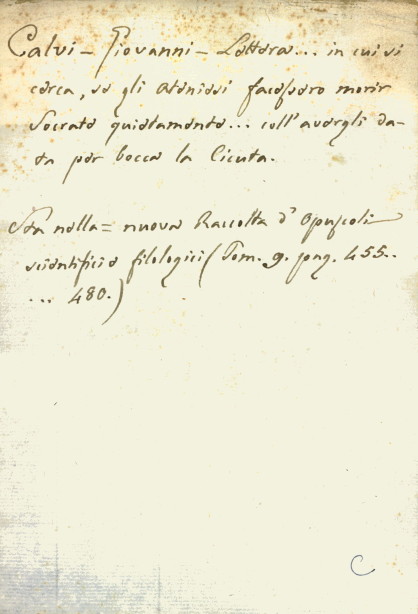 Calvi - Giovanni - Lettera... in cui si
cerca, se gli Ateniesi facessero morir
Socrate quietamente... coll'avergli da-
ta per bocca la Cicuta.
Sta nella = nuova Raccolta d'Opuscoli
scientifici e filologici (Tom. 9. pag. 455..
... 480.)
C